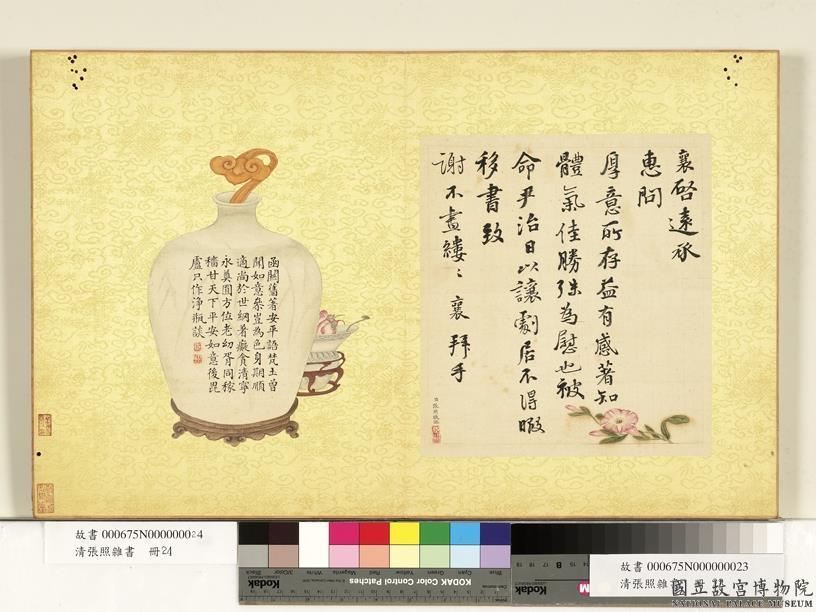 襄啓遠承
惠問
厚意所存益有感著知
體氣佳勝殊為慰也被
命尹洛日以讓劇居不得暇
移書致
謝不盡縷〻襄拜手
函關舊著安平語梵土曾
聞如意樂豈為色身期順
適尚於世網著癡貪清寧
永奠圓方位老幼胥同稼
穡甘天下平安如意後毘
盧只作淨瓶談
故書 000675N000000024
清張照雜書 冊24
故書 000675N000000023
清張照雜書
KODAK Color Control Patches
Kodak
Black
3/Color
White
Magenta
Red
Yellow
Green
Cyan
Blue
國立故宮博物院
NATIONAL PALACE MUSEUM